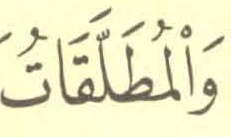 وَالْمُطَلَّقَاتُ